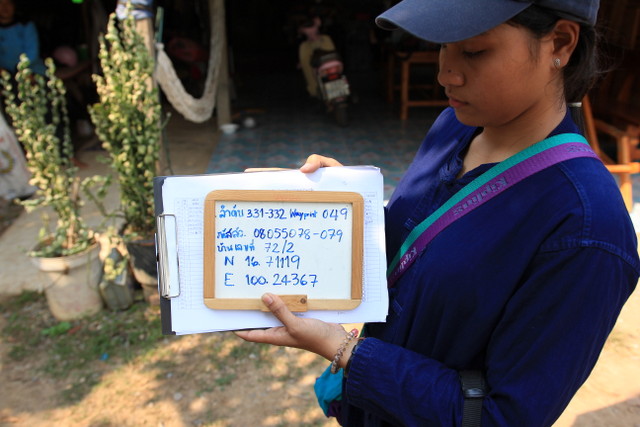 ลำดับ 331-332 Waypoint 049
รหัสสว. 08055078-079
บ้านเลขที่ 72/2
N 16.71119
E 100.24367
Kipling